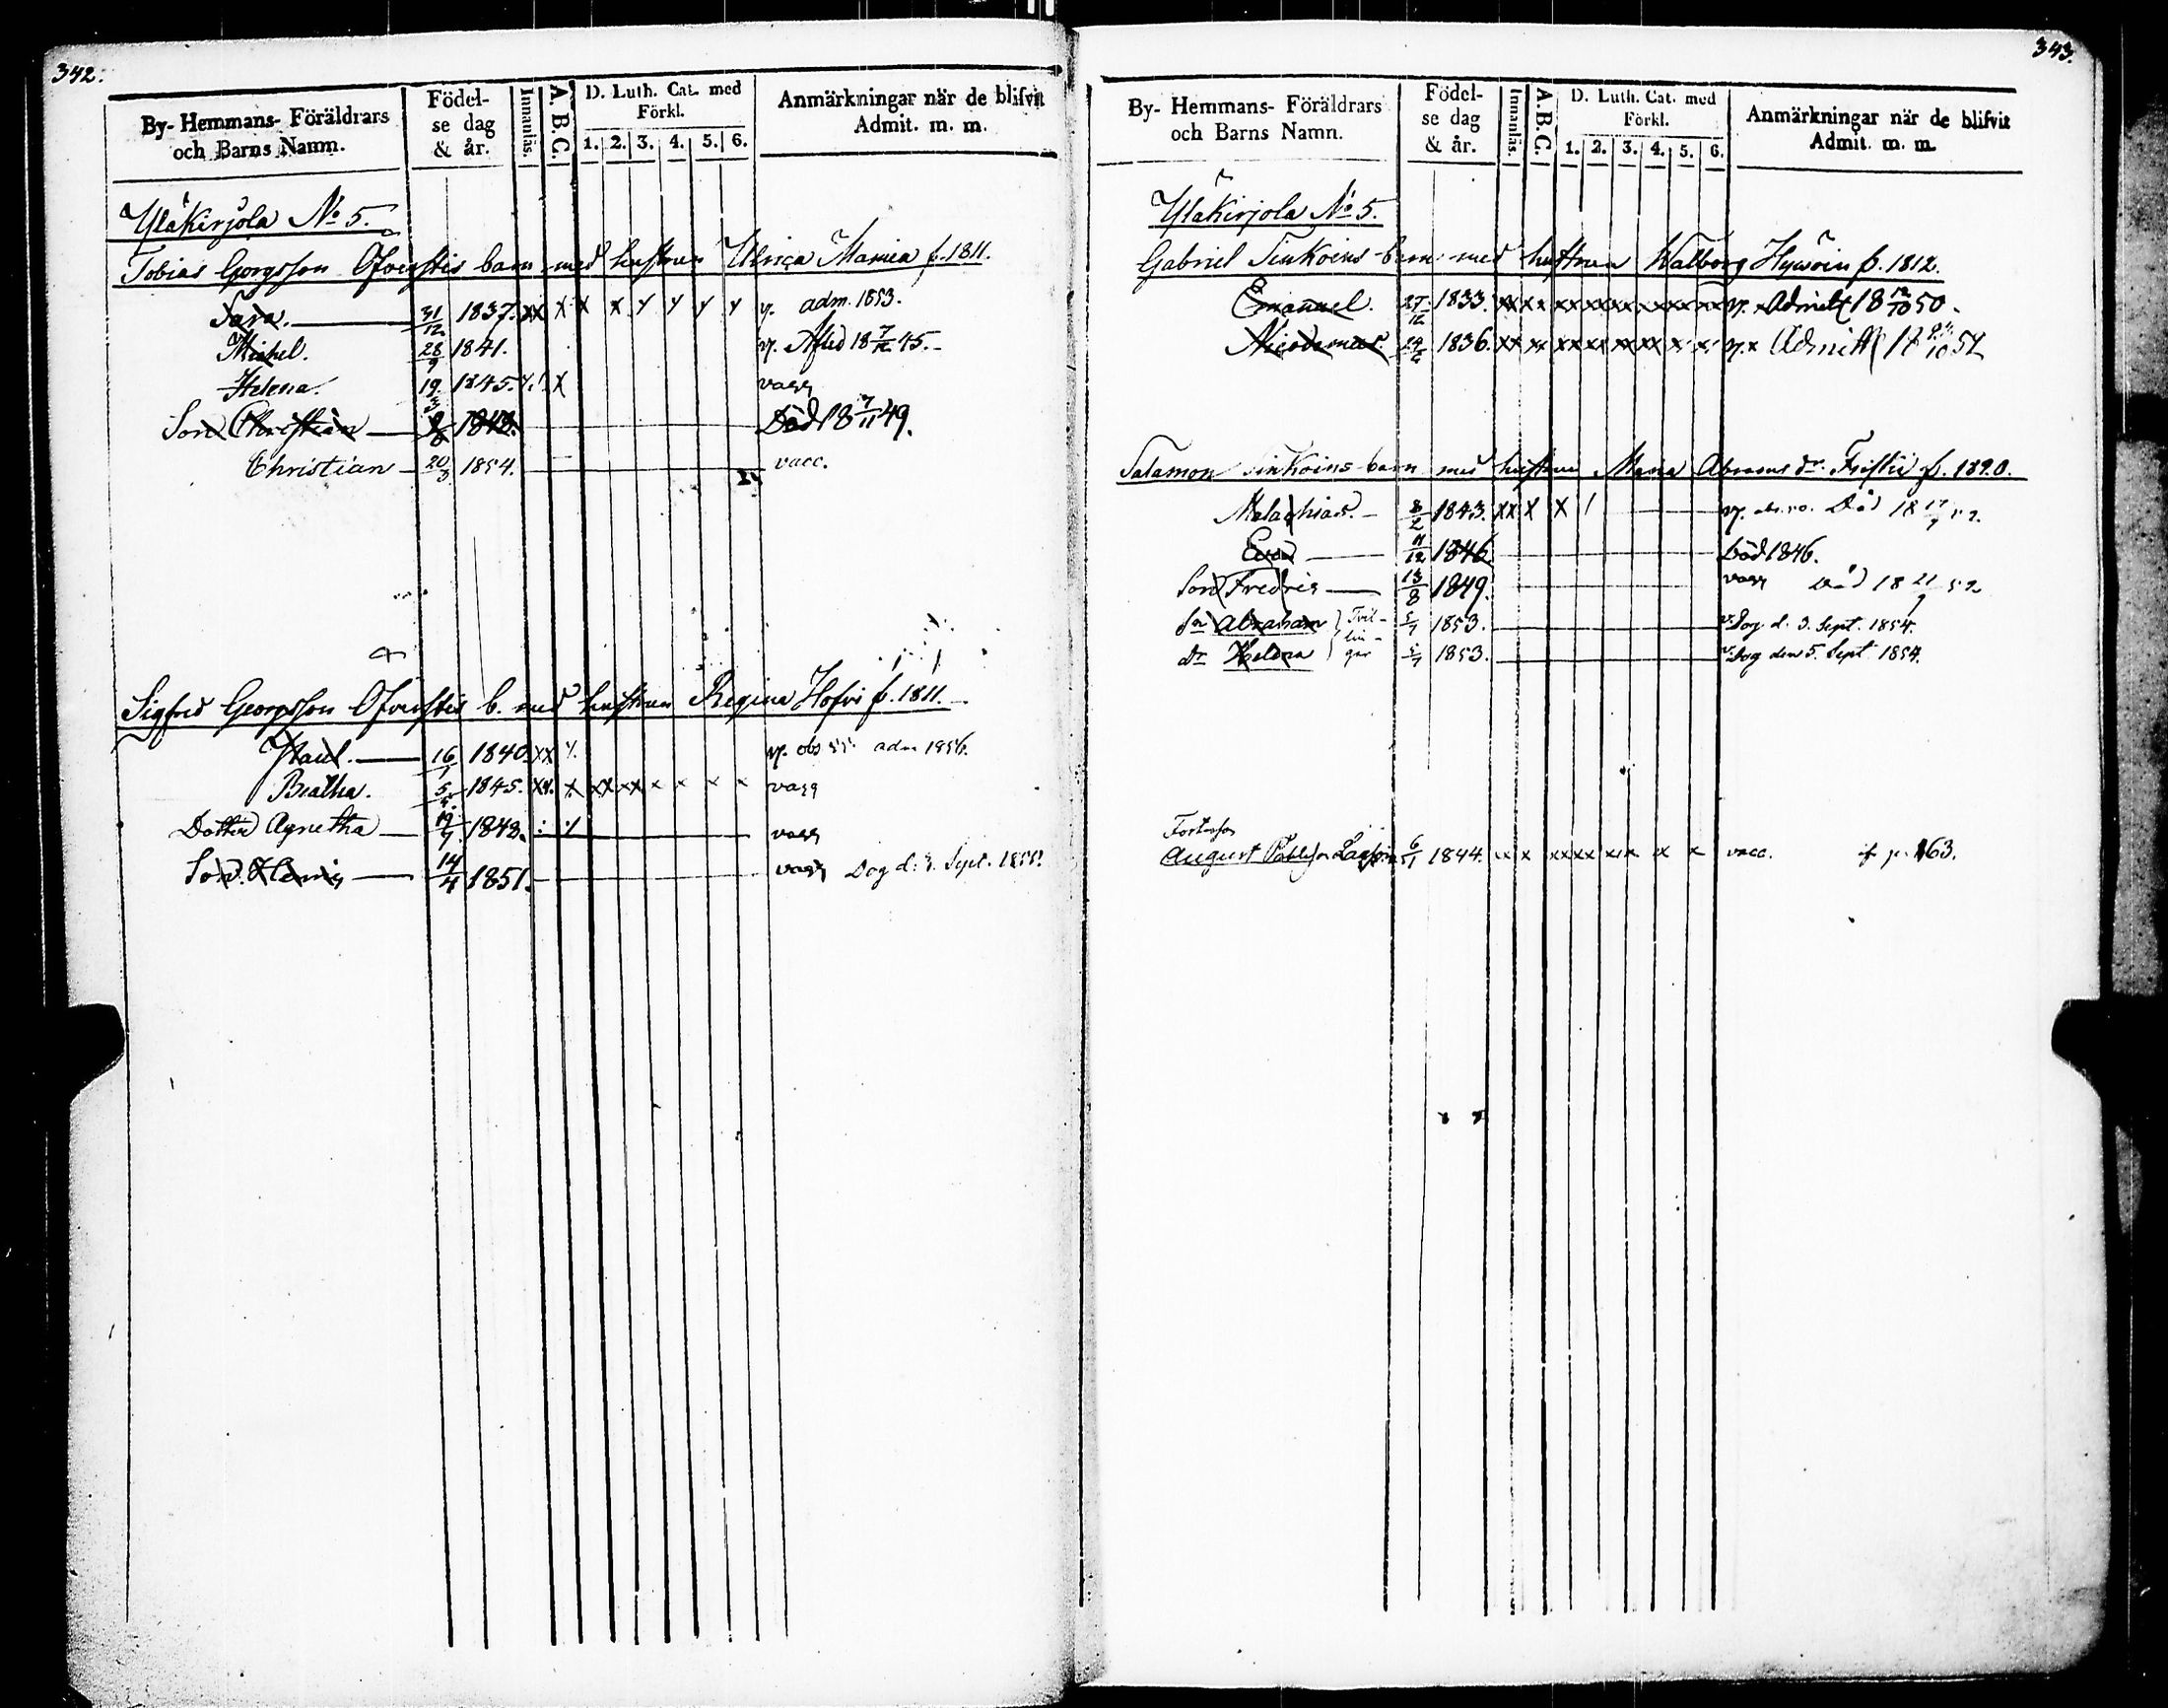 342.
By- Hemmans- Föräldrars och Barns Namn.
Födel- se dag & år.
Innanläs.
A.B.C.
D. Luth. Cat. med Förkl.
1. 2. 3. 4. 5. 6.
Anmärkningar när de blifvit Admit. m. m.
Yläkirjola No 5.
Tobias Georgsson Ofverstis barn med hustrun Ulrica Mamia f. 1811.
Sara. 31/12 1837. xx x x x y y y y v. adm. 1853.
Michel. 28/9 1841. v. Afled 18 7/12 45.
Helena. 19/3 1845. x vacc
Son Christian 1848. Död 18 7/11 49.
Christian 20/3 1854. vacc.
Sigfred Georgsson Ofverstis b. med hustrun Regina Hofvi f. 1811.
Paul. 16/1 1840. xx v. obs 55 adm 1856.
Beatha. 5/5 1845. xx x xx xx x x x x vacc
Dotter Agnetha 19/9 1848. vacc
Son Henric 14/4 1851. vacc Dog d. 3. Sept. 1855.
343.
By- Hemmans- Föräldrars och Barns Namn.
Födel- se dag & år.
Innanläs.
A.B.C.
D. Luth. Cat. med Förkl.
1. 2. 3. 4. 5. 6.
Anmärkningar när de blifvit Admit. m. m.
Yläkirjola No 5.
Gabriel Sinkoins barn med hustrun Walborg f. 1812.
Emanuel. 27/12 1833. xx xx xx xx xx xx xx v. x Admitt 18 12/10 50.
Nicodemus 1836. xx xx xx xx xx xx x x v. x Admitt 18 /10 52
Salamon Sinkoins barn med hustrun Maria Abrams dr f. 1820.
Malachias. 8/2 1843. xx x x / v. Död 18 17/9 52.
Eva 11/12 1846 Död 1846.
Son Fredric 13/8 1849. vacc Död 18 21/9 52
Sn Abraham } Tvil- 5/7 1853. v. Dog d. 3. Sept. 1854.
Dr Helena } lin- gar 5/7 1853. v. Dog den 5. Sept 1854.
August 6/5 1844. xx x xx xx xx x x vacc. p. 163.